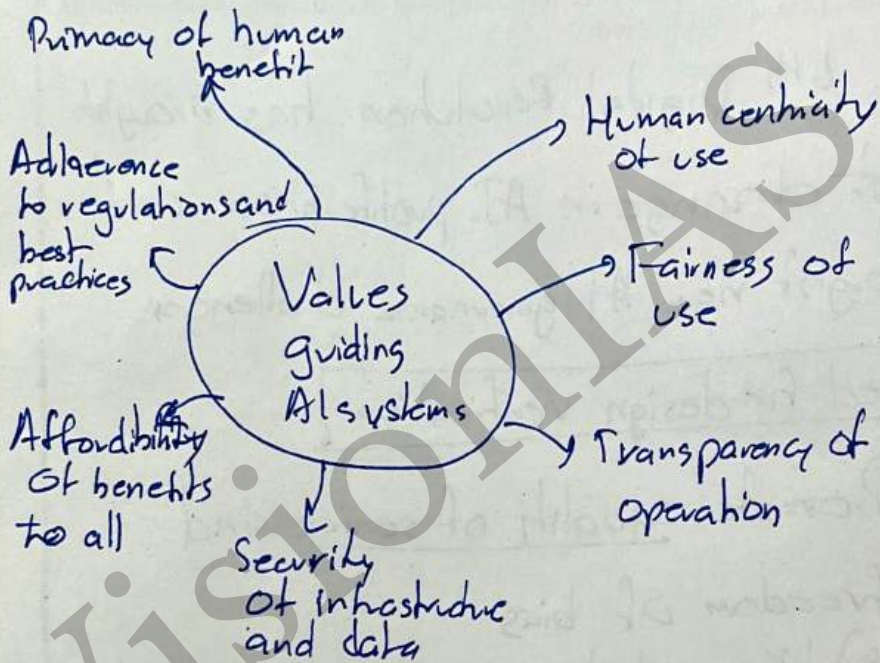 Primacy of human
benefit
Human centricity
of use
Adherence
to regulations and
best
practices
Fairness of
use
Values
guiding
AI systems
Affordibility
of benefits
to all
Transparency of
operation
Security
of infrastructure
and data
VisionIAS